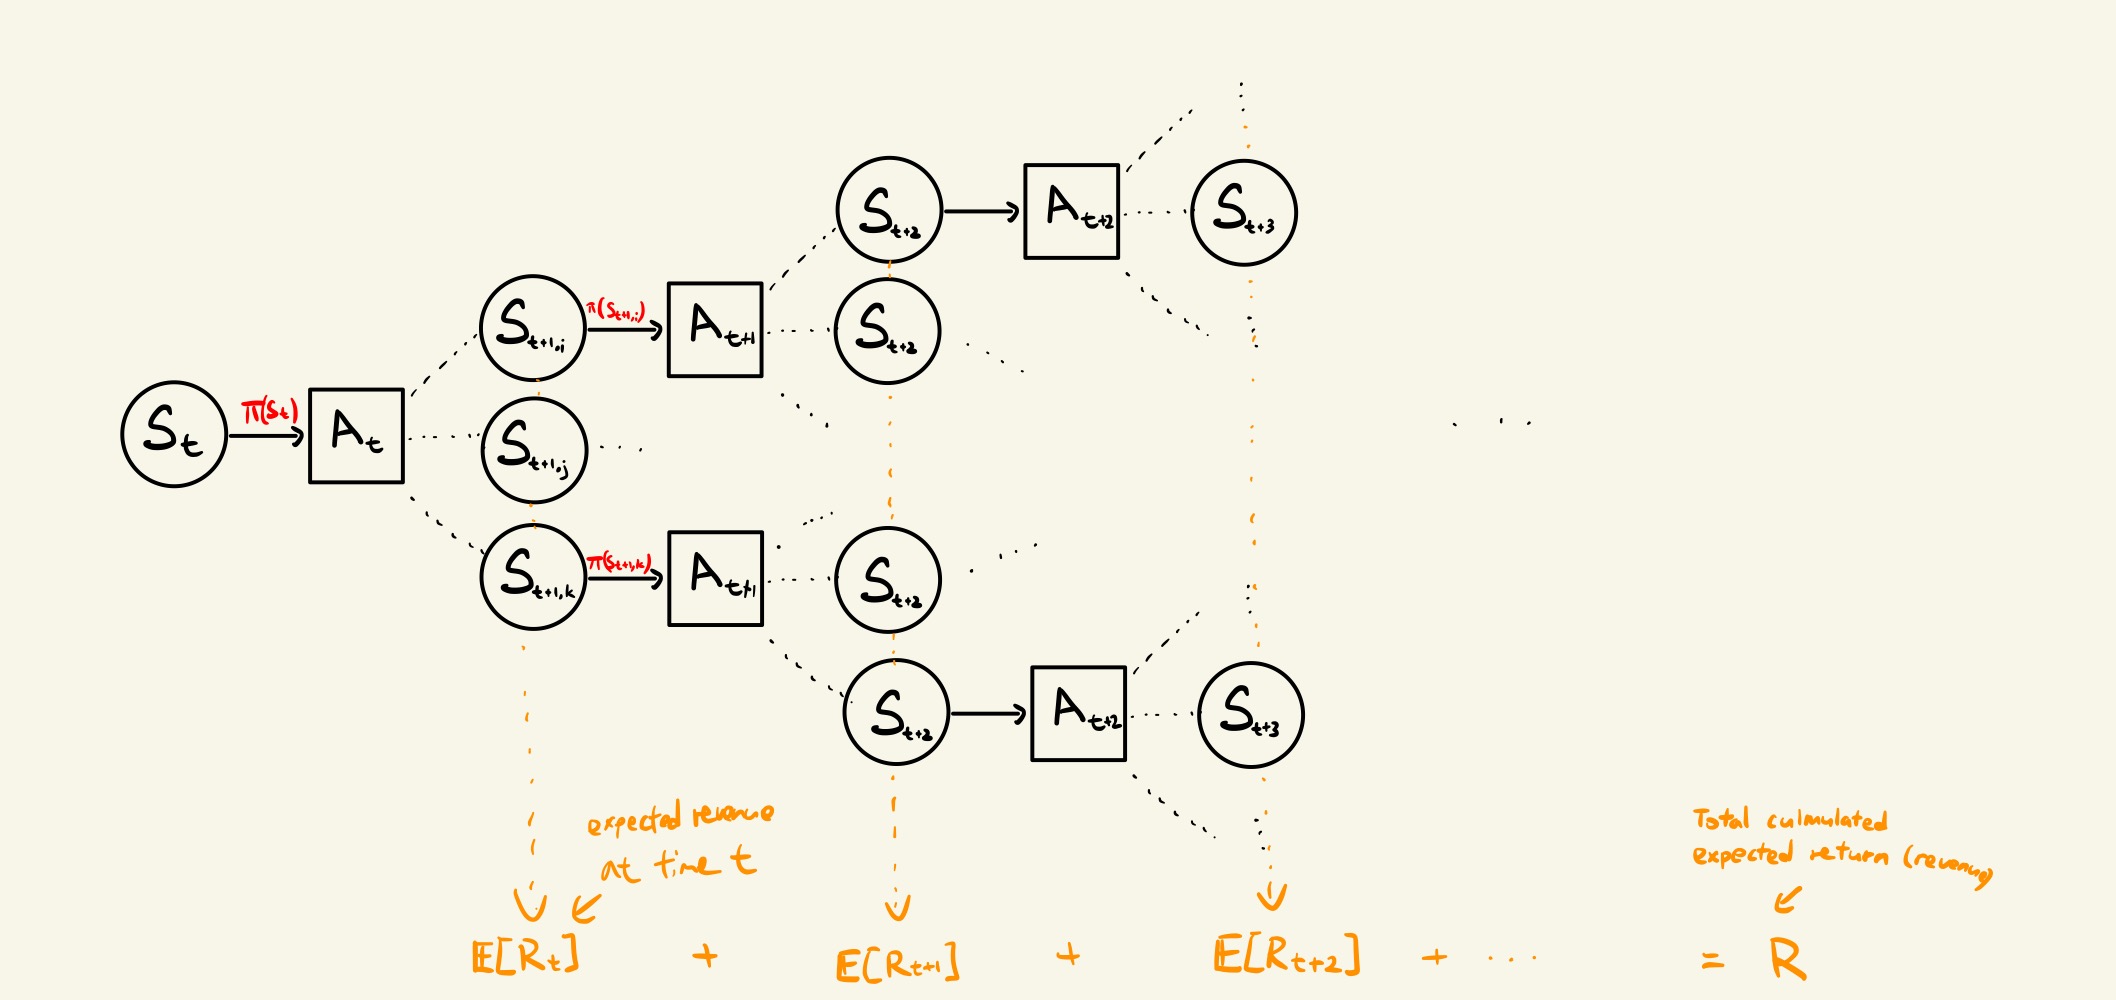 S_t+2
A_t+2
S_t+3
S_t+1,i
π(S_t+1,i)
A_t+1
S_t+2
S_t
π(S_t)
A_t
S_t+1,j
S_t+1,k
π(S_t+1,k)
A_t+1
S_t+2
S_t+2
A_t+2
S_t+3
expected revenue
at time t
Total culmulated
expected return (revenue)
𝔼[R_t] + 𝔼[R_t+1] + 𝔼[R_t+2] + ... = R